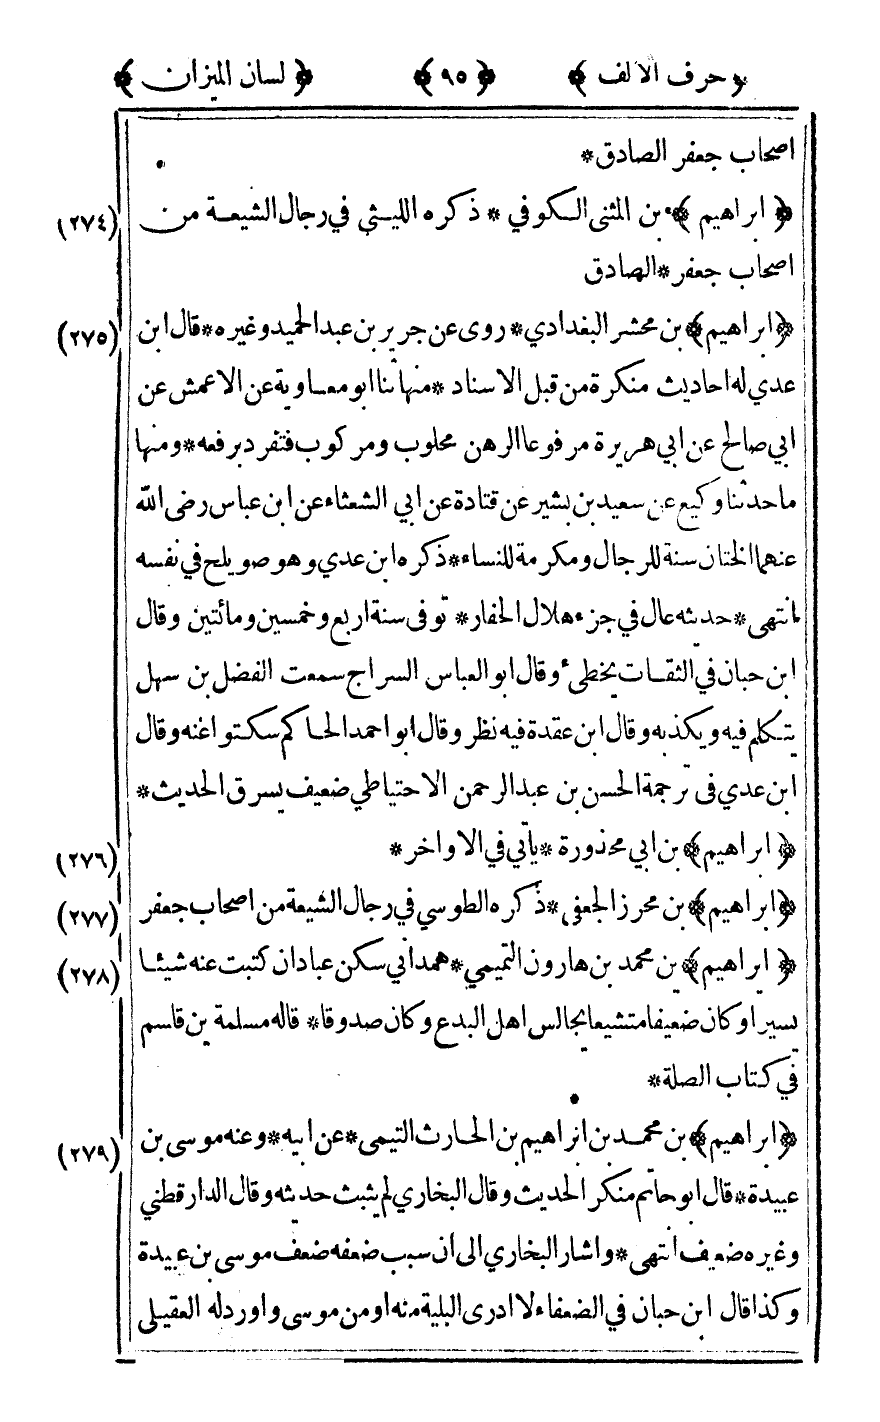 ﴿ حرف الالف ﴾ ﴿ ٩٥ ﴾ ﴿ لسان الميزان ﴾
اصحاب جعفر الصادق*
﴿ ابراهيم ﴾ بن المثنى الكوفي * ذكره الليثي في رجال الشيعة من (٢٧٤)
اصحاب جعفر*الصادق
﴿ابراهيم﴾ بن محشر البغدادي* روى عن جرير بن عبد الحميد وغيره*قال ابن (٢٧٥)
عدي له احاديث منكرة من قبل الاسناد *منها ثنا ابو معاوية عن الاعمش عن
ابي صالح عن ابي هريرة مرفوعا الرهن محلوب ومركوب فتفرد برفعه*ومنها
ما حدثنا وكيع عن سعيد بن بشير عن قتادة عن ابي الشعثاء عن ابن عباس رضى الله
عنهما الختان سنة للرجال ومكرمة للنساء*ذكره ابن عدي وهو صويلح في نفسه
انتهى*حديثه عال في جزء هلال الحفار* توفى سنة اربع وخمسين ومائتين وقال
ابن حبان في الثقات يخطىء وقال ابو العباس السراج سمعت الفضل بن سهل
يتكلم فيه ويكذبه وقال ابن عقدة فيه نظر وقال ابو احمد الحاكم سكتوا عنه وقال
ابن عدي فى ترجمة الحسن بن عبد الرحمن الاحتياطي ضعيف يسرق الحديث*
﴿ ابراهيم﴾ بن ابي محذورة *يأتي في الاواخر* (٢٧٦)
﴿ابراهيم﴾ بن محرز الجعفى *ذكره الطوسي في رجال الشيعة من اصحاب جعفر (٢٧٧)
﴿ ابراهيم﴾ بن محمد بن هارون التميمي*همداني سكن عبادان كتبت عنه شيئا (٢٧٨)
يسيرا وكان ضعيفا متشيعا يجالس اهل البدع وكان صدوقا* قاله مسلمة بن قاسم
في كتاب الصلة*
﴿ابراهيم﴾ بن محمد بن ابراهيم بن الحارث التيمى*عن ابيه*وعنه موسى بن (٢٧٩)
عبيدة*قال ابو حاتم منكر الحديث وقال البخاري لم يثبت حديثه وقال الدارقطني
وغيره ضعيف انتهى*واشار البخاري الى ان سبب ضعفه ضعف موسى بن عبيدة
وكذا قال ابن حبان في الضعفاء لا ادرى البلية منه او من موسى واورد له العقيلى